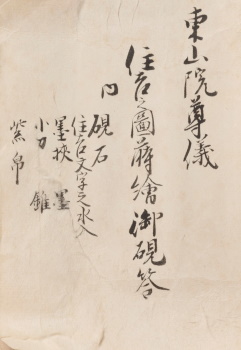 東山院尊儀
住吉之圖蒔繪御硯筥
内 硯石
住吉文字之水入
墨挾 墨
小刀 錐
紫帛